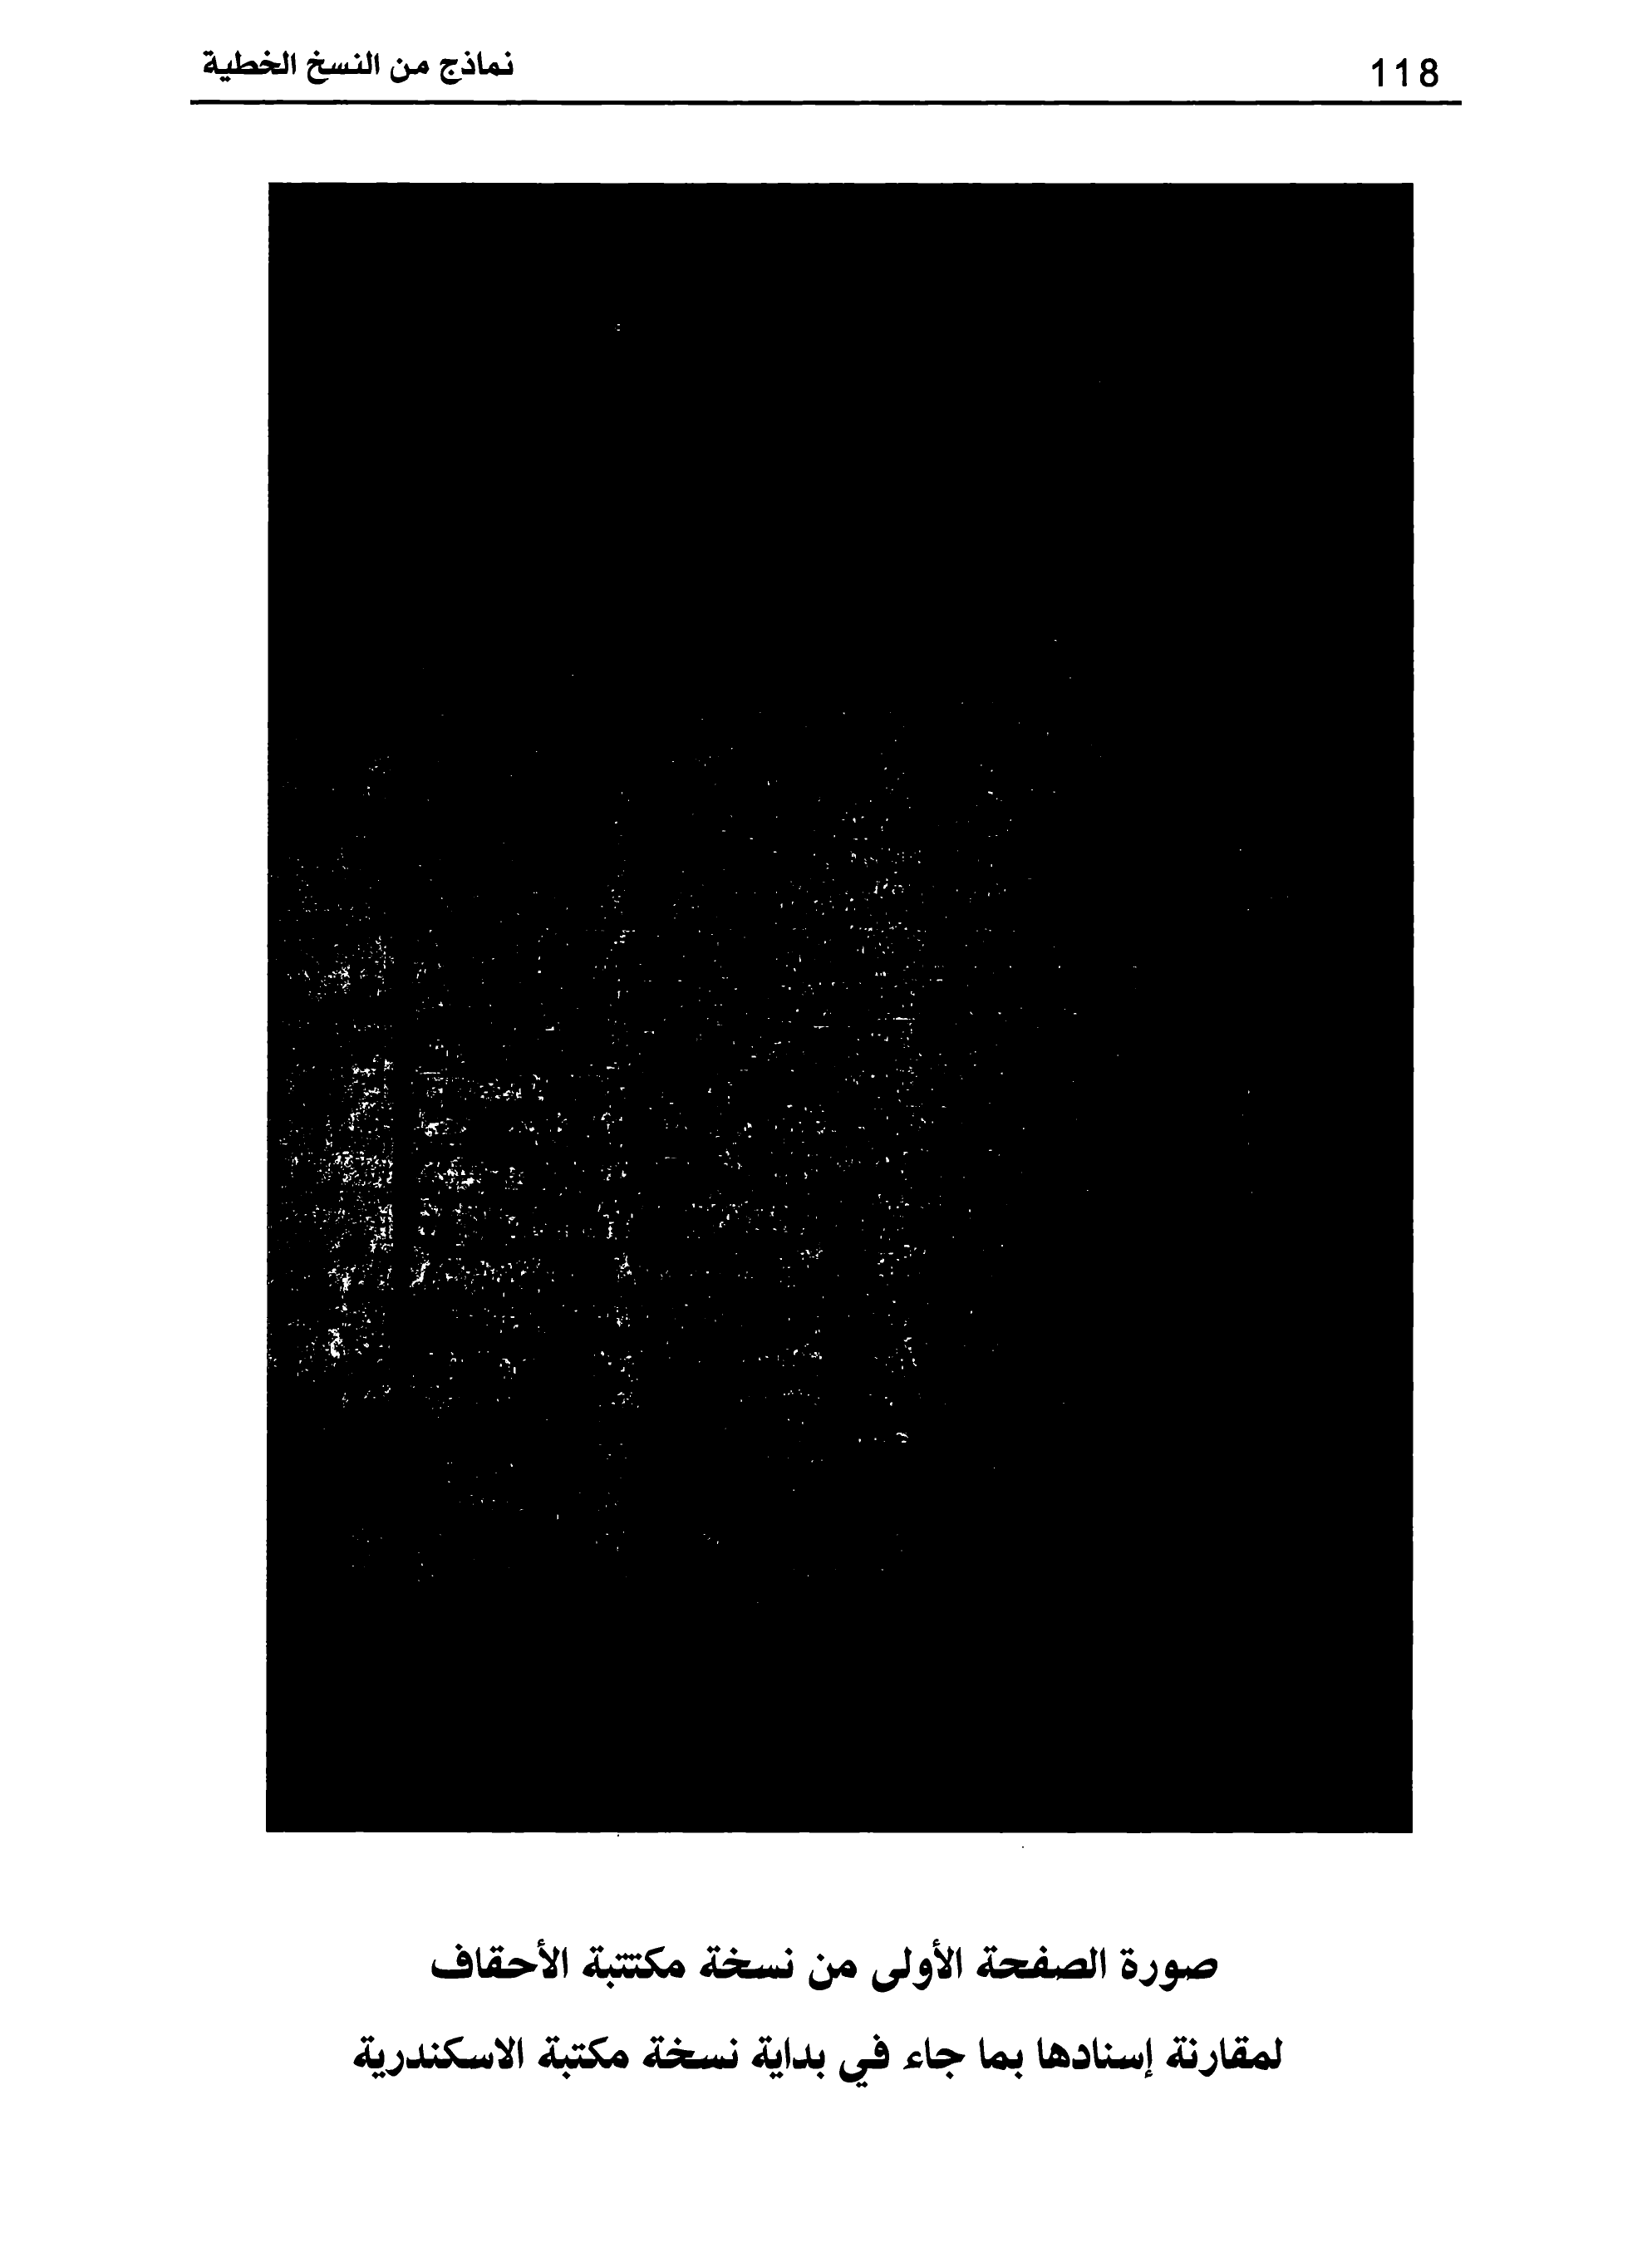 118
نماذج من النسخ الخطية
صورة الصفحة الأولى من نسخة مكتتبة الأحقاف
لمقارنة إسنادها بما جاء في بداية نسخة مكتبة الاسكندرية